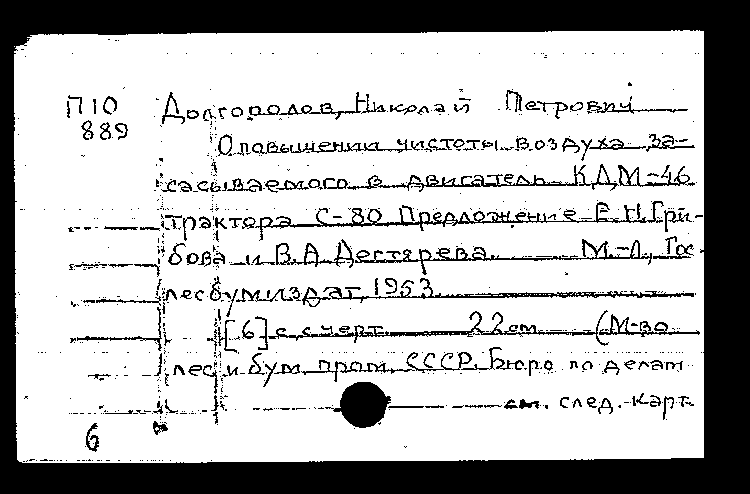 П10 Долгополов, Николай Петрович
889 О повышении чистоты воздуха за-
сасываемого в двигатель КДМ-46
трактора С-80 Предложение Е.Н.Гри-
бова и В.А.Дегтярева. М.-Л., Гос-
лесбумиздат, 1953
[6] с. с черт. 22 см (М-во
лес. и бум. пром. СССР. Бюро по делам
см. след. карт.
6